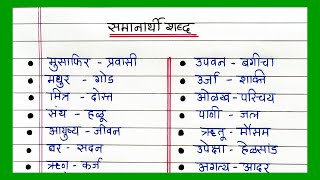 समानार्थी शब्द
मुसाफिर - प्रवासी
मधुर - गोड
मित्र - दोस्त
संथ - हळू
आयुष्य - जीवन
घर - सदन
ऋण - कर्ज
उपवन - बगीचा
उर्जा - शक्ति
ओळख - परिचय
पाणी - जल
ऋतू - मोसम
उपेक्षा - हेळसांड
अगत्य - आदर